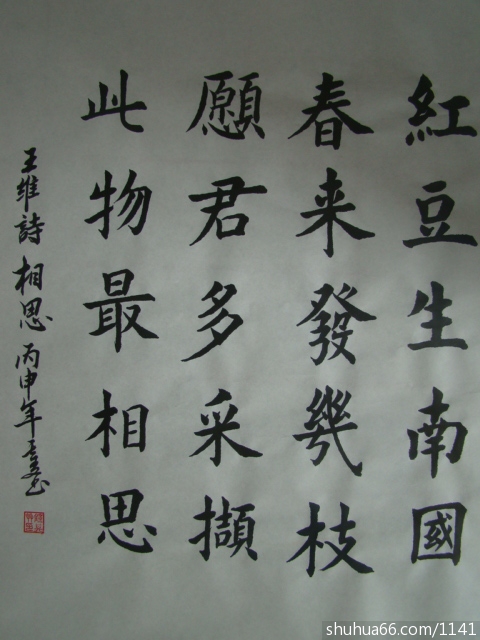 紅豆生南國
春来發幾枝
願君多采擷
此物最相思
王維詩 相思 丙申年
shuhua66.com/1141